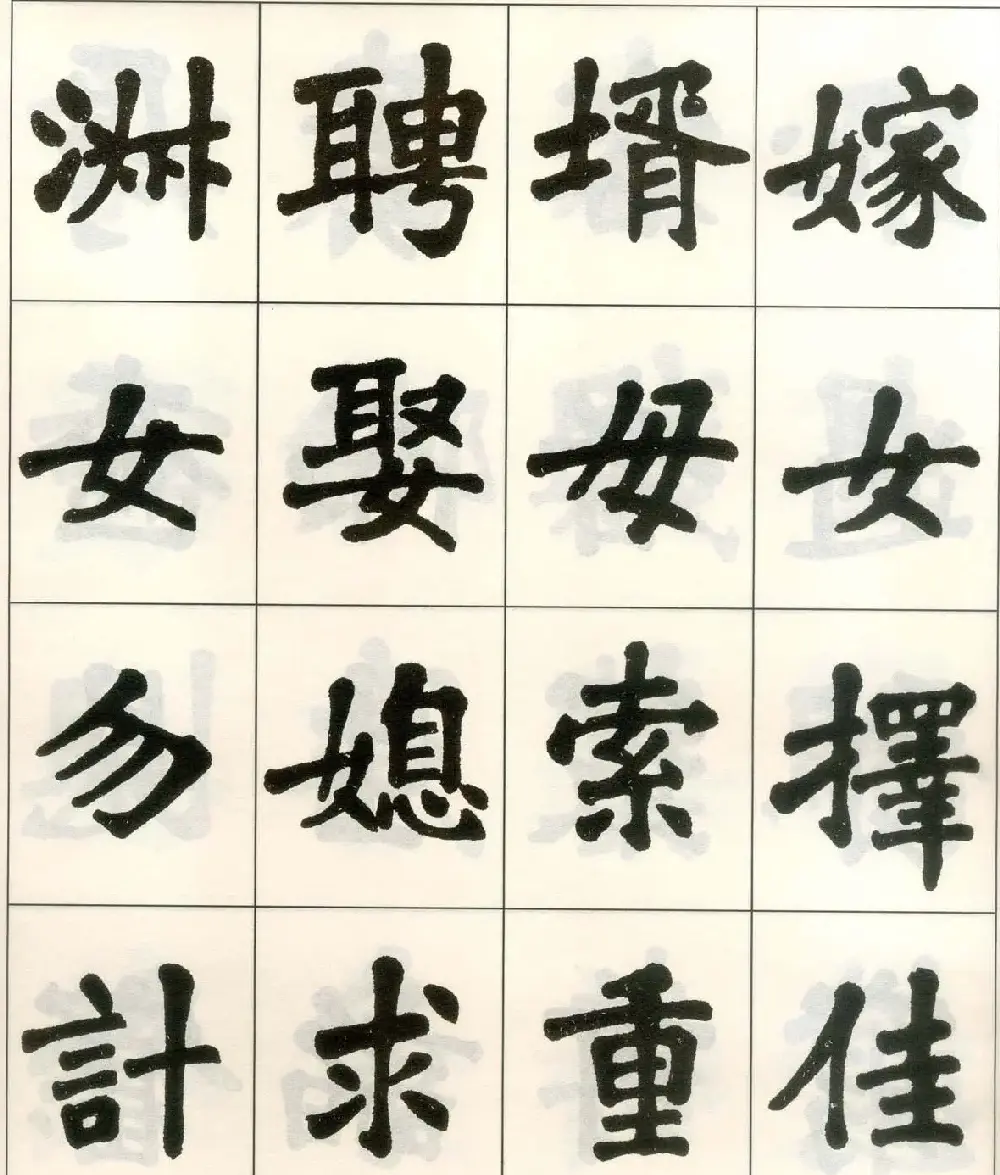 嫁女擇佳
壻毋索重
聘娶媳求
淑女勿計